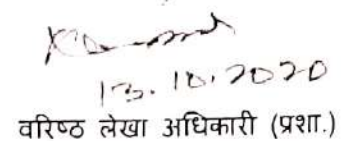 13.10.2020
वरिष्ठ लेखा अधिकारी (प्रशा.)